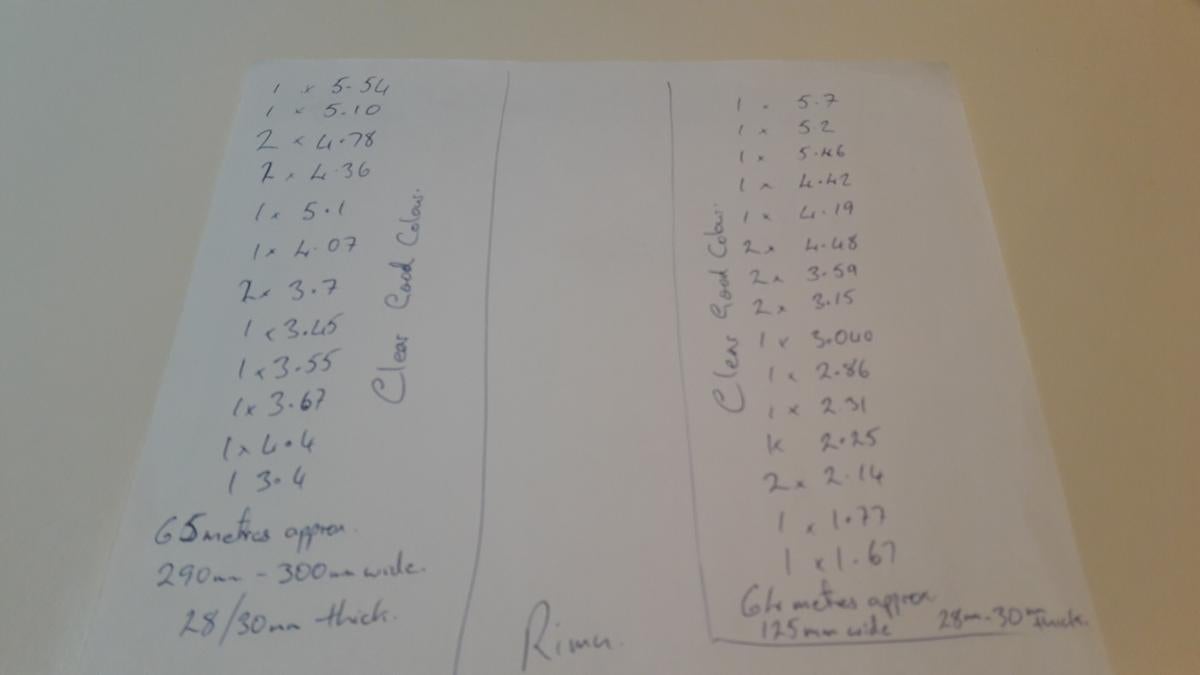 1 x 5.54
1 x 5.10
2 x 4.78
2 x 4.36
1 x 5.1
1 x 4.07
2 x 3.7
1 x 3.45
1 x 3.55
1 x 3.67
1 x 4.4
1 3.4
Clear Good Colour.
65 metres approx.
290mm - 300mm wide.
28/30mm thick.
Rimu.
1 x 5.7
1 x 5.2
1 x 5.46
1 x 4.42
1 x 4.19
2 x 4.48
2 x 3.59
2 x 3.15
1 x 3.040
1 x 2.86
1 x 2.31
1x 2.25
2 x 2.14
1 x 1.77
1 x 1.67
Clear Good Colour.
64 metres approx
125mm wide 28mm-30mm thick.